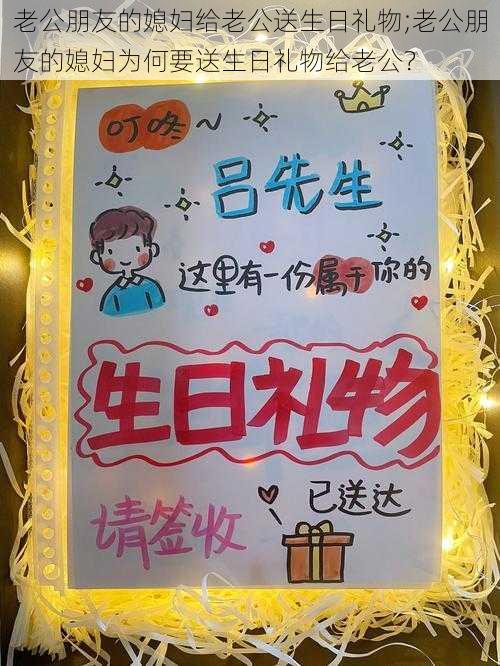 老公朋友的媳妇给老公送生日礼物;老公朋
友的媳妇为何要送生日礼物给老公?
叮咚~
吕先生
这里有一份属于你的
生日礼物
已送达
请签收